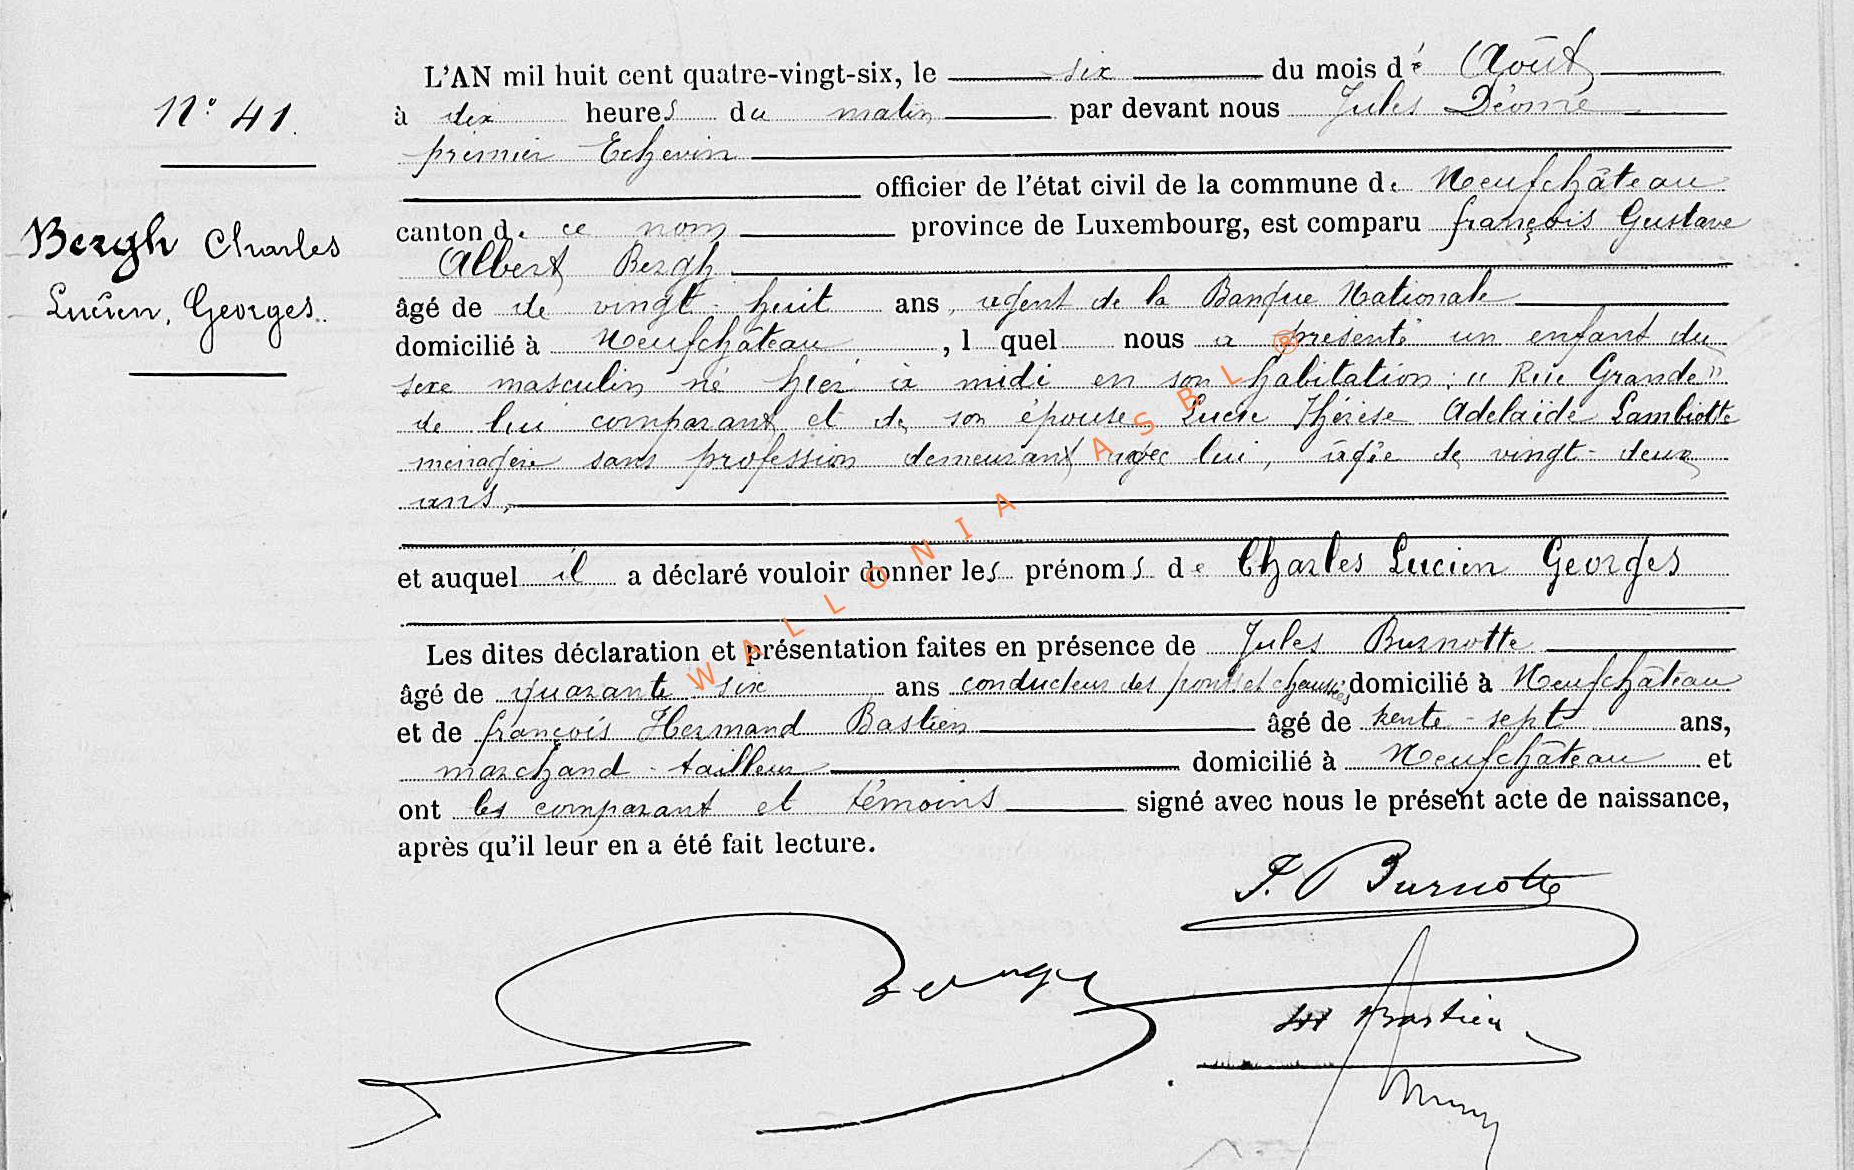 N° 41.
Bergh Charles
Lucien, Georges.
L'AN mil huit cent quatre-vingt-six, le six du mois d' Août
à dix heures du matin par devant nous Jules Déome
premier Echevin
officier de l'état civil de la commune de Neufchâteau
canton de ce nom province de Luxembourg, est comparu françois Gustave
Albert Bergh
âgé de de vingt-huit ans, agent de la Banque Nationale
domicilié à Neufchâteau, lequel nous a présenté un enfant du
sexe masculin né hier à midi en son habitation : "Rue Grande"
de lui comparant et de son épouse Lucie Thérèse Adelaïde Lambiotte
ménagère sans profession demeurant avec lui, âgée de vingt-deux
ans,
et auquel il a déclaré vouloir donner les prénoms de Charles Lucien Georges
Les dites déclaration et présentation faites en présence de Jules Burnotte
âgé de quarante six ans conducteur des ponts et chaussées domicilié à Neufchâteau
et de françois Hermand Bastien âgé de trente-sept ans,
marchand-tailleur domicilié à Neufchâteau et
ont les comparant et témoins signé avec nous le présent acte de naissance,
après qu'il leur en a été fait lecture.
J. Burnotte
Bergh
Bastien
WALLONIA ASBL ®